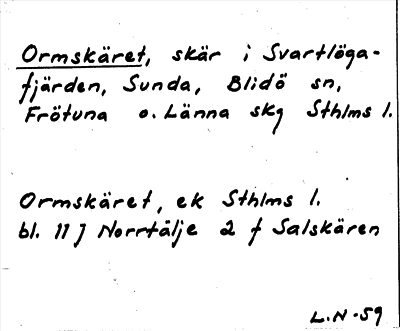 Ormskäret, skär i Svartlöga-
fjärden, Sunda, Blidö sn,
Frötuna o. Länna skg Sthlms l.
Ormskäret, ek Sthlms l.
bl. 11 J Norrtälje 2 f Salskären
L.N-59